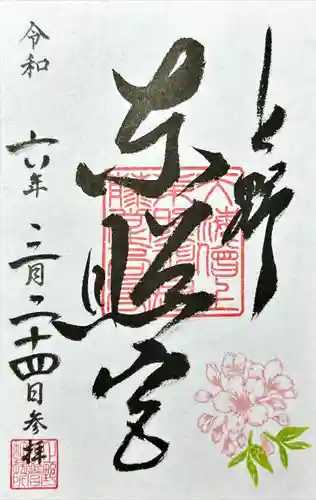 上野
東照宮
令和
六年三月二十四日参拝